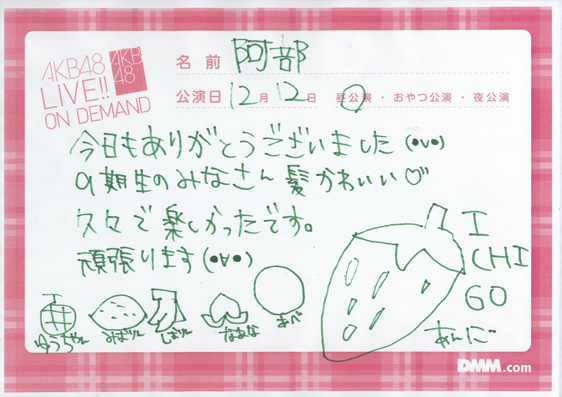 AKB48
LIVE!!
ON DEMAND
AKB
48
名前 阿部
公演日 12月12日 昼公演・おやつ公演・夜公演
今日もありがとうございました(•v•)
9期生のみなさん髪かわいい♡
久々で楽しかったです。
頑張ります(•∀•)
I
CHI
GO
あんに
ゆうちゃん
みぱりん
しほりん
なあな
あべ
DMM.com